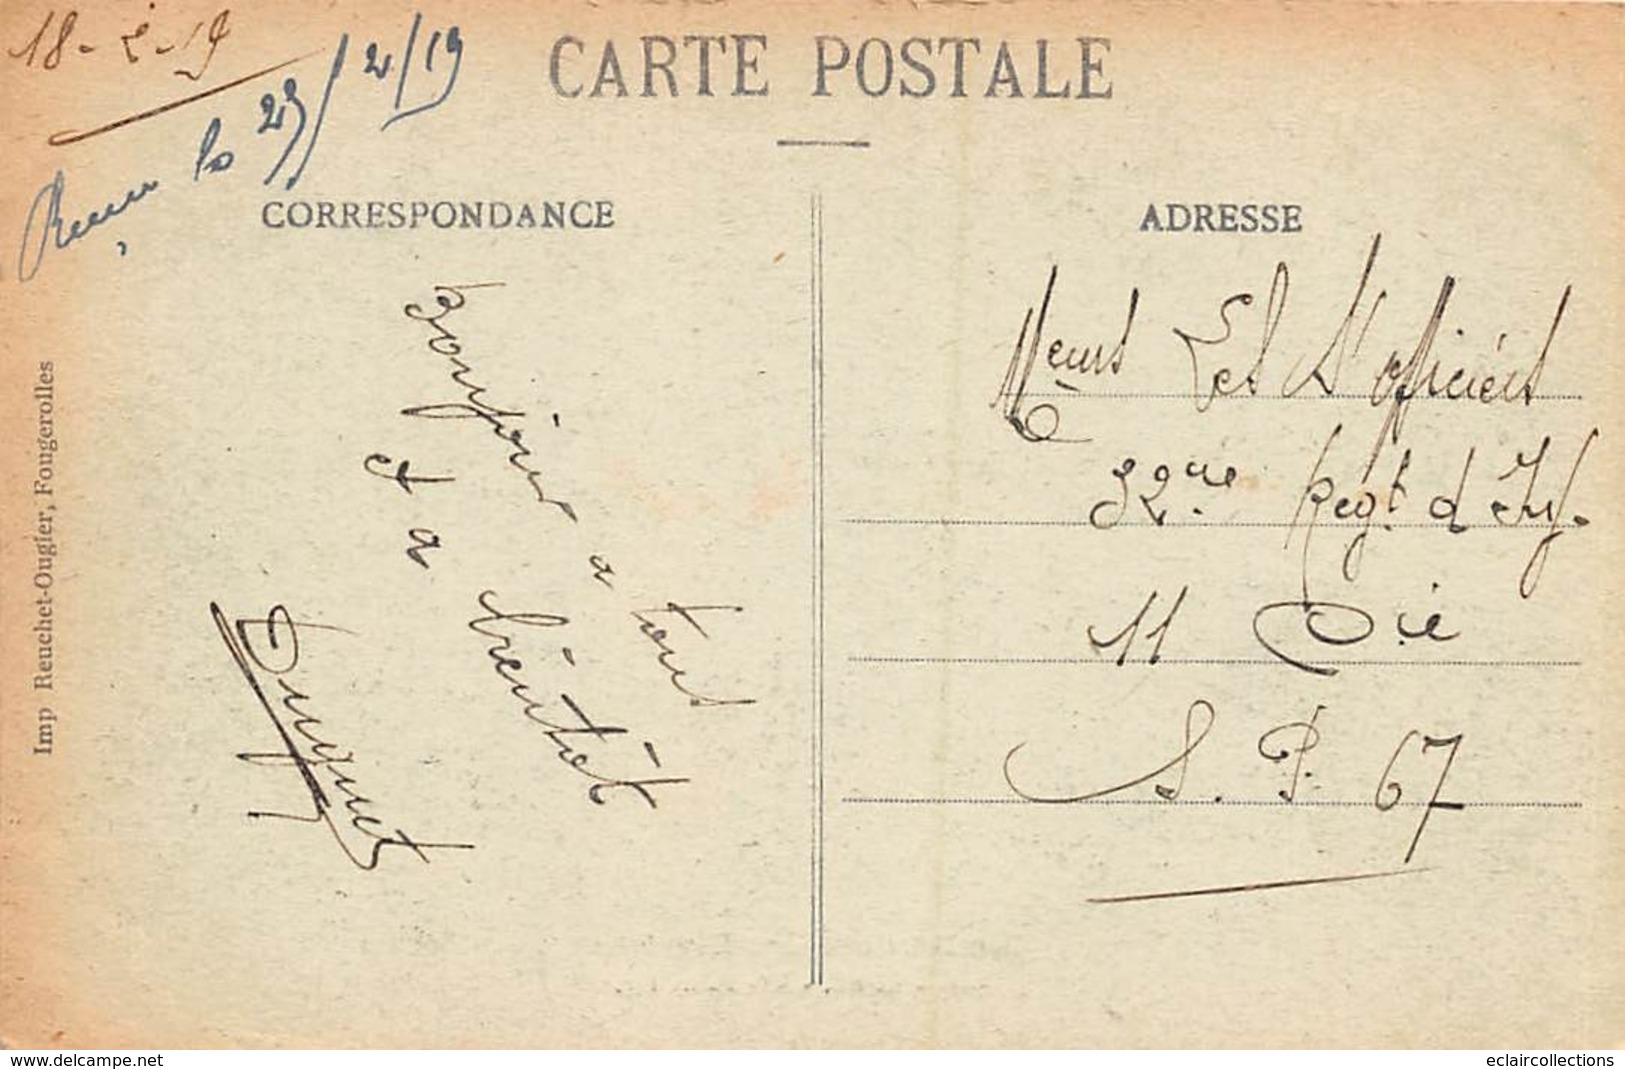 18-2-19
le 23/2/19
CARTE POSTALE
CORRESPONDANCE
Bonjour a tous
et a bientôt
Duquet
ADRESSE
Les S/officiers
32me Regt. d Inf.
11 Cie
S. P. 67
Imp Reuchet-Ougier, Fougerolles
www.delcampe.net
eclaircollections